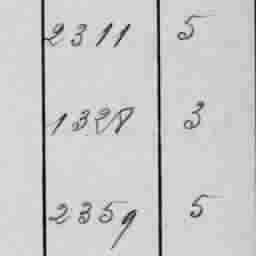 2311 5
1328 3
2359 5